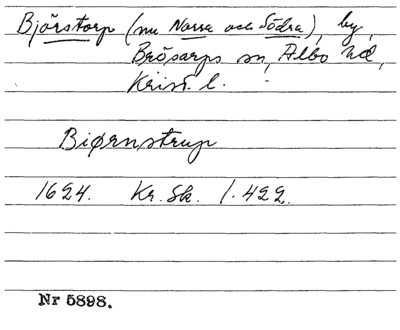 Bjärstorp (nu Norra och Södra), by,
Brösarps sn, Albo hd,
Krist. l.
Biørnstrup
1624. Kr. Sk. 1.422.
Nr 5898.